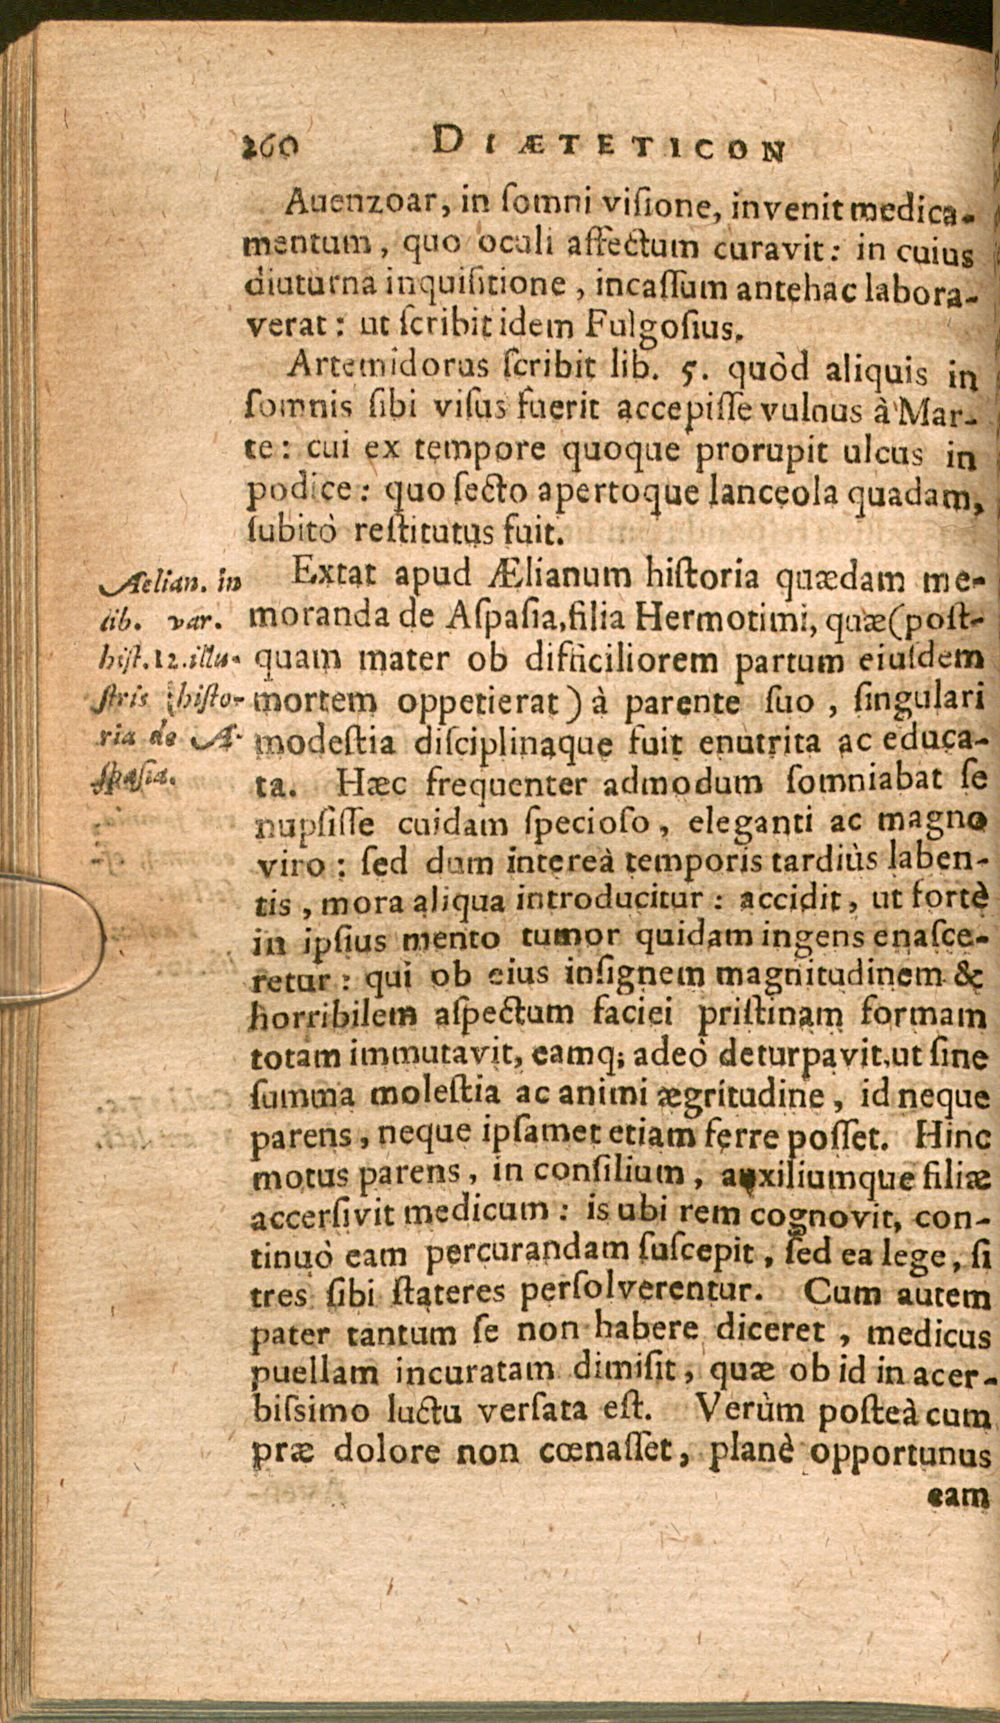 260 DIÆTETICON
Auenzoar, in ſomni viſione, invenit medica-
mentum, quo oculi affectum curavit: in cuius
diuturna inquiſitione, incaſſum antehac labora-
verat: ut ſcribit idem Fulgoſius.
Artemidorus ſcribit lib. 5. quòd aliquis in
ſomnis ſibi viſus fuerit accepiſſe vulnus à Mar-
te: cui ex tempore quoque prorupit ulcus in
podice: quo ſecto apertoque lanceola quadam,
ſubitò reſtitutus fuit.
Extat apud Ælianum hiſtoria quædam me-
moranda de Aſpaſia, filia Hermotimi, quæ (poſt-
quam mater ob difficiliorem partum eiuſdem
mortem oppetierat) à parente ſuo, ſingulari
modeſtia diſciplinaque fuit enutrita ac educa-
ta. Hæc frequenter admodum ſomniabat ſe
nupſiſſe cuidam ſpecioſo, eleganti ac magno
viro: ſed dum intereà temporis tardiùs laben-
tis, mora aliqua introducitur: accidit, ut fortè
in ipſius mento tumor quidam ingens enaſce-
retur: qui ob eius inſignem magnitudinem &
horribilem aſpectum faciei priſtinam formam
totam immutavit, eamq; adeò deturpavit, ut ſine
ſumma moleſtia ac animi ægritudine, id neque
parens, neque ipſamet etiam ferre poſſet. Hinc
motus parens, in conſilium, auxiliumque filiæ
accerſivit medicum: is ubi rem cognovit, con-
tinuò eam percurandam ſuſcepit, ſed ea lege, ſi
tres ſibi ſtateres perſolverentur. Cum autem
pater tantum ſe non habere diceret, medicus
puellam incuratam dimiſit, quæ ob id in acer-
biſsimo luctu verſata eſt. Verùm poſteà cum
præ dolore non cœnaſſet, planè opportunus
eam
Aelian. in
lib. var.
hiſt. 12. illu-
ſtris hiſto-
ria de A-
ſpaſia.